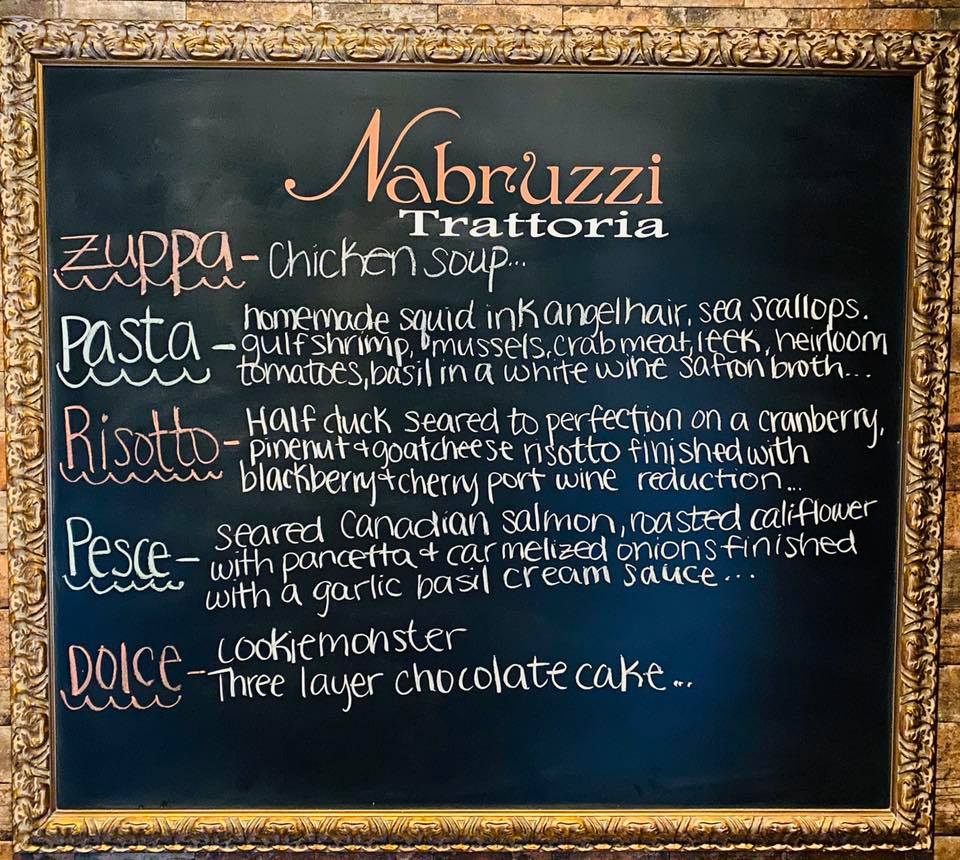 Nabruzzi
Trattoria
Zuppa - Chicken soup...
Pasta - homemade squid ink angelhair, sea scallops.
gulf shrimp, mussels, crabmeat, leek, heirloom
tomatoes, basil in a white wine safron broth...
Risotto - Half duck seared to perfection on a cranberry,
pinenut & goatcheese risotto finished with
blackberry + cherry port wine reduction...
Pesce - seared Canadian salmon, roasted califlower
with pancetta & carmelized onions finished
with a garlic basil cream sauce...
Dolce - Cookiemonster
Three layer chocolate cake...